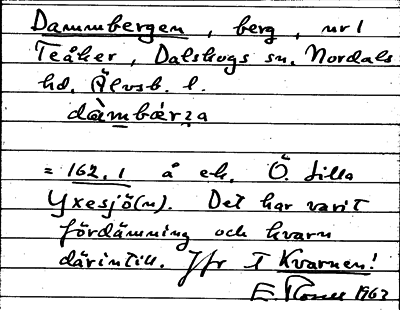 Dammbergen, berg, nr 1
Teåker, Dalskogs sn. Nordals
hd. Älvsb. l.
dàmbærꞩa
= 162,1 å ek. Ö. Lilla
Yxesjö(n). Det har varit
fördämning och kvarn
därintill. Jfr T Kvarnen!
1967